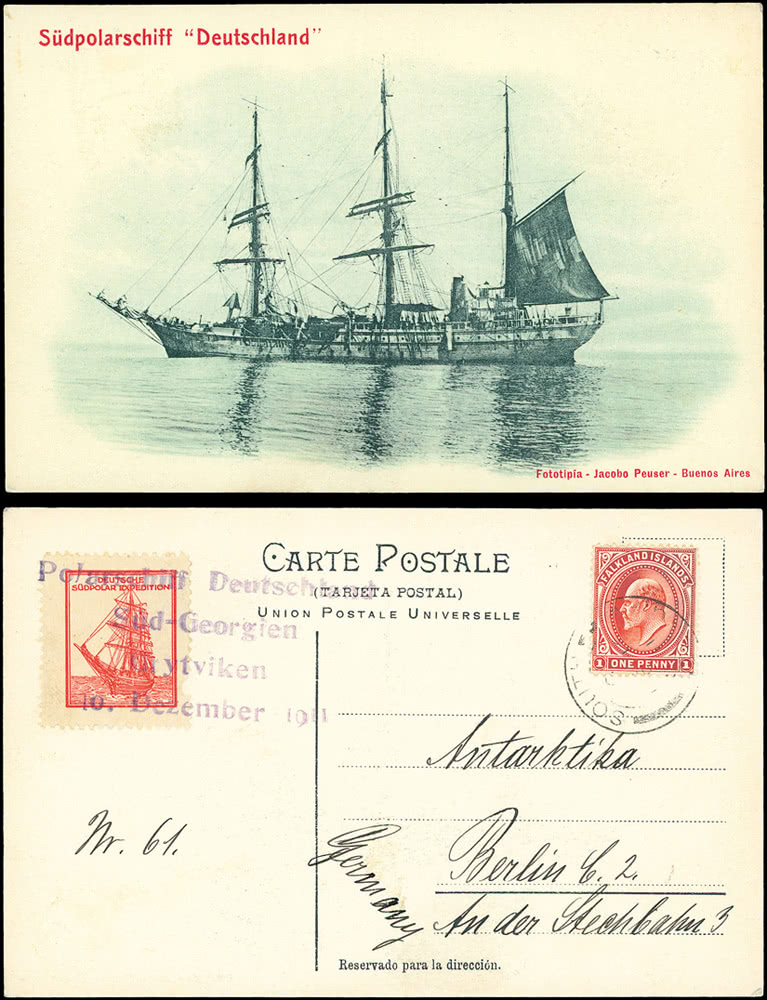 Südpolarschiff "Deutschland"
Fototipía - Jacobo Peuser - Buenos Aires
CARTE POSTALE
(TARJETA POSTAL)
UNION POSTALE UNIVERSELLE
DEUTSCHE
SÜDPOLAR EXPEDITION
Polarschiff Deutschland
Süd-Georgien
Grytviken
10. Dezember 1911
FALKLAND ISLANDS
1 ONE PENNY 1
SOUTH
Antarktika
Nr. 61.
Berlin C. 2.
Germany
An der Stechbahn 3
Reservado para la dirección.